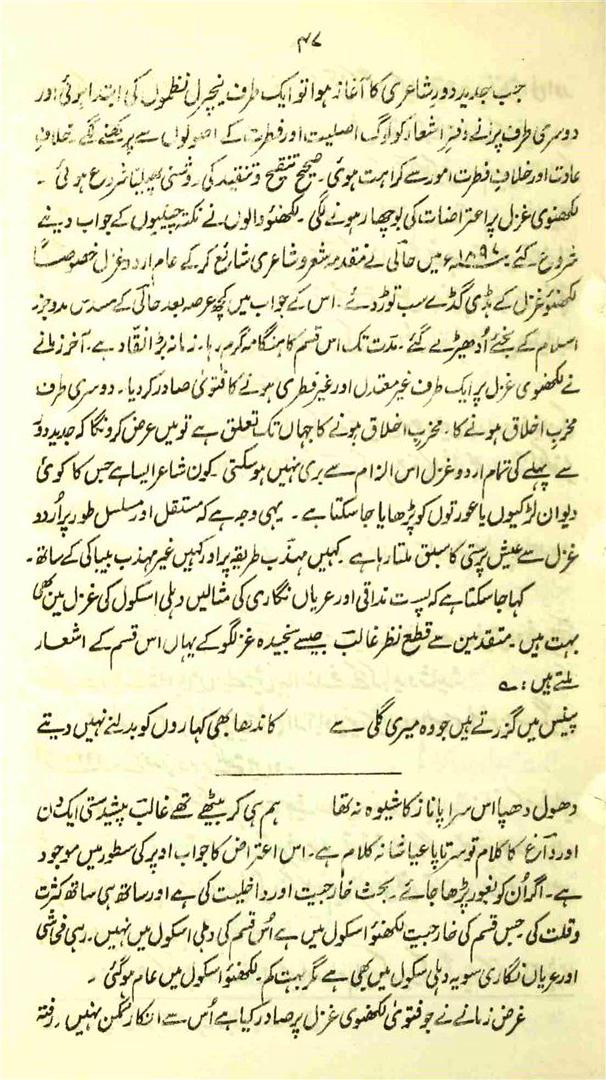 ۴۷
جب جدید دور شاعری کا آغاز ہوا تو ایک طرف نیچرل نظموں کی ابتدا ہوئی اور
دوسری طرف پرانے دفترِ اشعار کو لوگ اصلیت اور فطرت کے اصولوں سے پرکھنے لگے۔ خلافِ
عادت اور خلافِ فطرت امور سے کراہت ہوئی۔ صحیح تنقیح و تنقید کی روشنی پھیلنا شروع ہوئی۔
لکھنوی غزل پر اعتراضات کی بوچھار ہونے لگی۔ لکھنؤ والوں نے نکتہ چینیوں کے جواب دینے
شروع کئے۔ ۱۸۹۷ء میں حالی نے مقدمہ شعر و شاعری شائع کر کے عام اردو غزل خصوصاً
لکھنؤ غزل کے ہڈی گڈے سب توڑ دئے۔ اس کے جواب میں کچھ عرصہ بعد حالی کے مسدس مدوجزر
اسلام کے بخئے اُدھیڑے گئے۔ مدت تک اس قسم کا ہنگامہ گرم رہا۔ زمانہ بڑا نقاد ہے۔ آخر زمانے
نے لکھنوی غزل پر ایک طرف غیر معتدل اور غیر فطری ہونے کا فتویٰ صادر کر دیا۔ دوسری طرف
مخرب اخلاق ہونے کا۔ مخرب اخلاق ہونے کا جہاں تک تعلق ہے تو میں عرض کروں گا کہ جدید دور
سے پہلے کی تمام اردو غزل اس الزام سے بری نہیں ہو سکتی۔ کون شاعر ایسا ہے جس کا کوئی
دیوان لڑکیوں یا عورتوں کو پڑھایا جا سکتا ہے۔ یہی وجہ ہے کہ مستقل اور مسلسل طور پر اُردو
غزل سے عیش پرستی کا سبق ملتا رہا ہے۔ کہیں مہذب طریقہ پر اور کہیں غیر مہذب بیباکی کے ساتھ۔
کہا جا سکتا ہے کہ پست مذاقی اور عریاں نگاری کی مثالیں دہلی اسکول کی غزل میں بھی
بہت ہیں۔ متقدمین سے قطع نظر غالب جیسے سنجیدہ غزلگو کے یہاں اس قسم کے اشعار
ملتے ہیں:۔
پینس میں گزرتے ہیں جو وہ میری گلی سے کاندھا بھی کہاروں کو بدلنے نہیں دیتے
دھول دھپا اس سراپا ناز کا شیوہ نہ تھا ہم ہی کر بیٹھے تھے غالب پیشدستی ایک دن
اور داغ کا کلام تو سرتاپا عیاشانہ کلام ہے۔ اس اعتراض کا جواب اوپر کی سطور میں موجود
ہے۔ اگر اُن کو بغور پڑھا جائے۔ بحث خارجیت اور داخلیت کی ہے اور ساتھ ہی ساتھ کثرت
و قلت کی جس قسم کی خارجیت لکھنؤ اسکول میں ہے اُس قسم کی دہلی اسکول میں نہیں۔ رہی فحاشی
اور عریاں نگاری سو یہ دہلی سکول میں بھی ہے مگر بہت کم۔ لکھنؤ اسکول میں عام ہو گئی۔
غرض زمانے نے جو فتویٰ لکھنوی غزل پر صادر کیا ہے اُس سے انکار ممکن نہیں۔ رفتہ